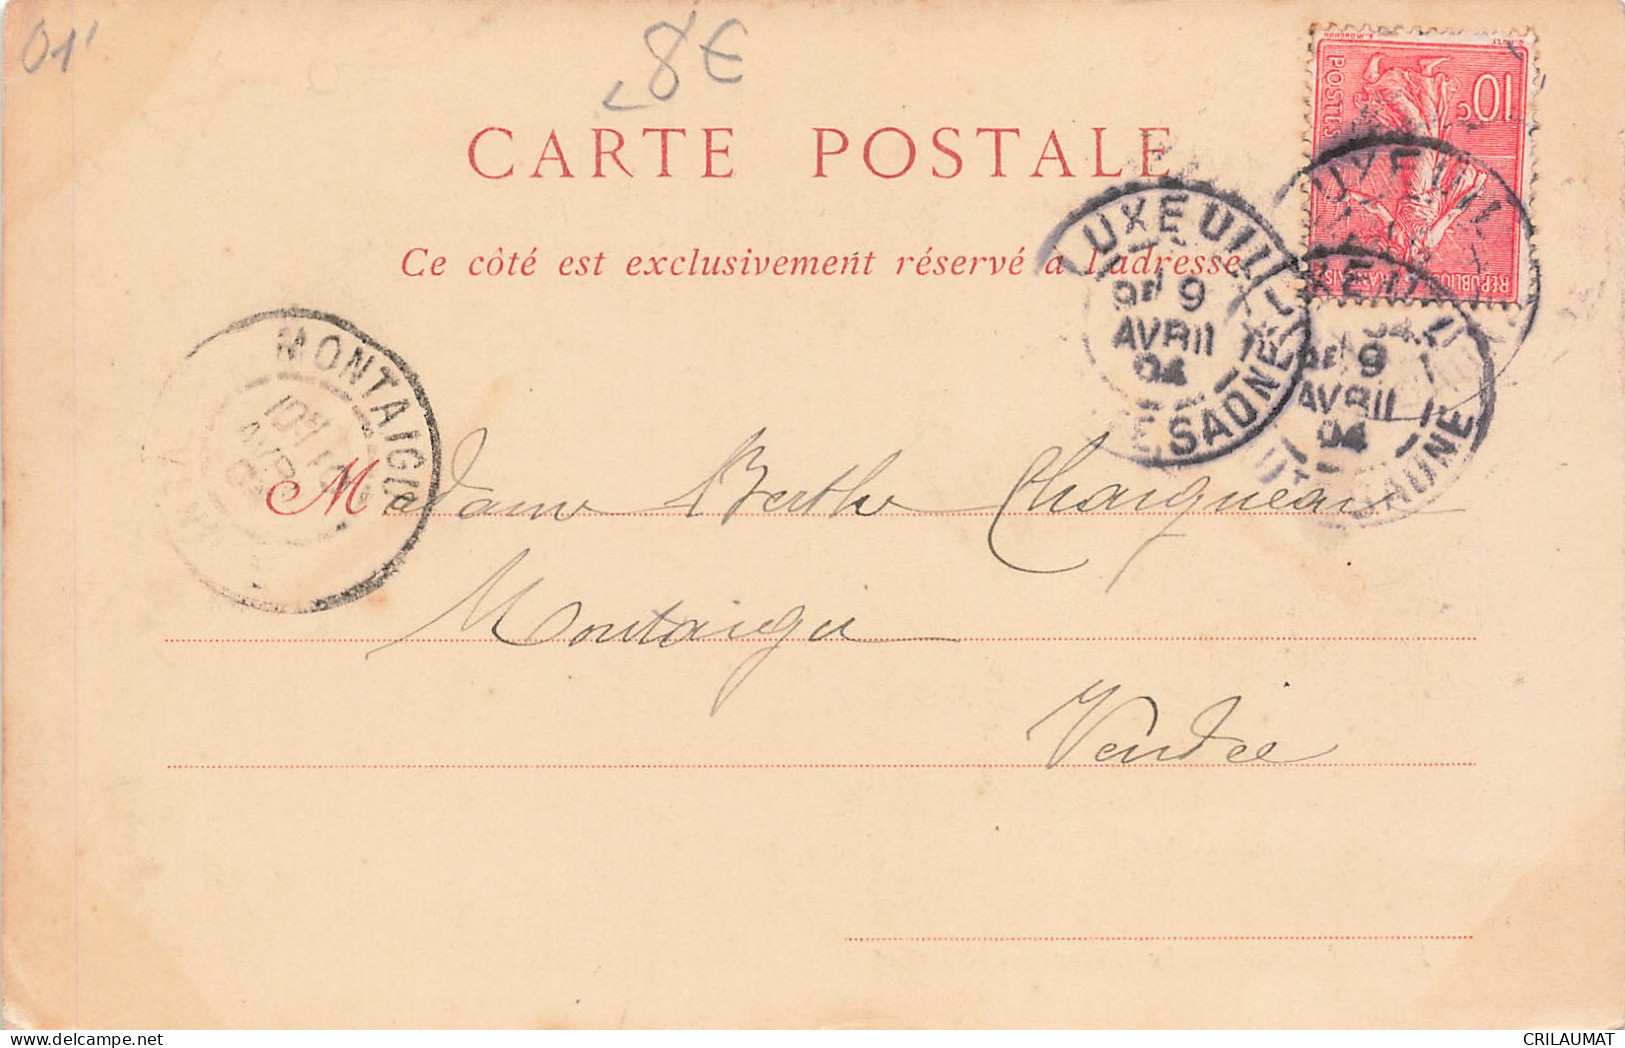 01'
8€
CARTE POSTALE
Ce côté est exclusivement réservé à l'adresse
10c
POSTES
LUXEUIL
9
AVRIL
04
HTE SAONE
9
AVRIL
04
SAONE
MONTAIGU
Madame Berthe Chaigneau
Montaigu
Vendée
CRILAUMAT